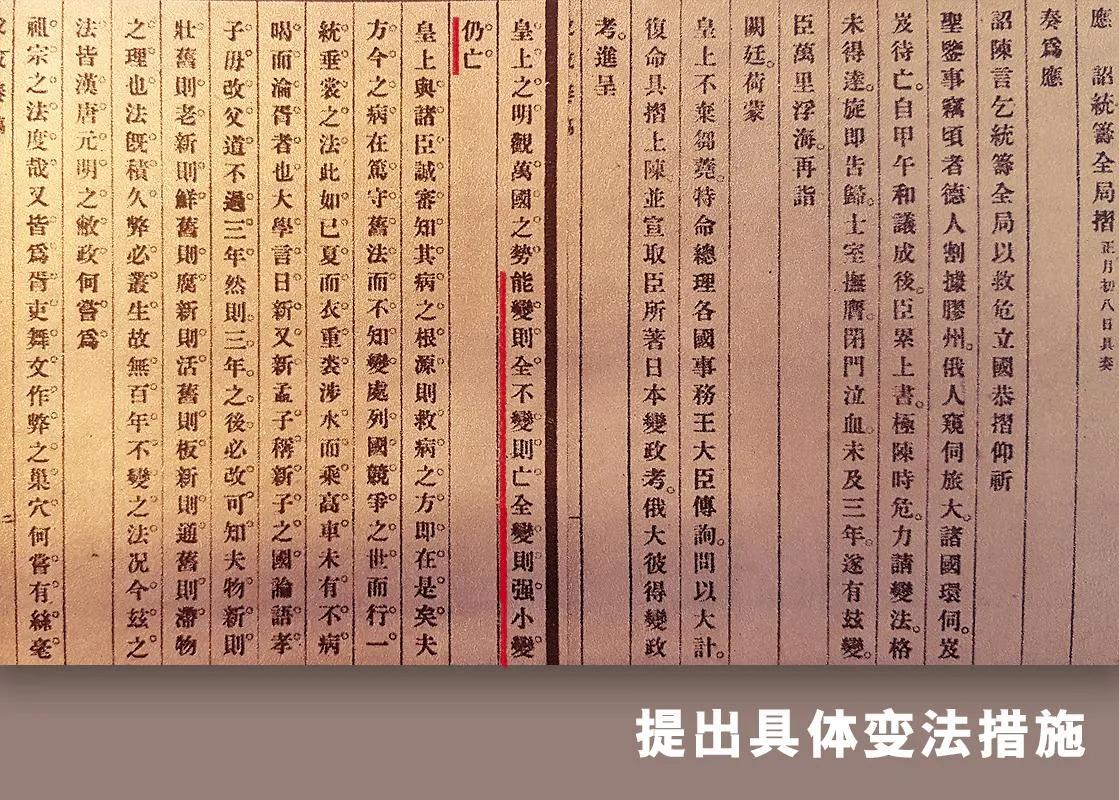 應　詔統籌全局摺 正月初八日具奏
奏爲應
詔陳言乞統籌全局以救危立國恭摺仰祈
聖鑒事竊頃者德人割據膠州。俄人窺伺旅大。諸國環伺。岌
岌待亡。自甲午和議成後。臣累上書。極陳時危。力請變法。格
未得達。旋即告歸。土室撫膺。閉門泣血。未及三年。遂有茲變。
臣萬里浮海。再詣
闕廷。荷蒙
皇上不棄芻蕘。特命總理各國事務王大臣傳詢。問以大計。
復命具摺上陳並宣取臣所著日本變政考。俄大彼得變政
考。進呈
皇上之明觀萬國之勢能變則全不變則亡全變則强小變
仍亡
皇上與諸臣誠審知其病之根源則救病之方即在是矣夫
方今之病在篤守舊法而不知變處列國競爭之世而行一
統垂裳之法此如已夏而衣重裘涉水而乘高車未有不病
暍而淪胥者也大學言日新又新孟子稱新子之國論語孝
子毋改父道不過三年然則三年之後必改可知夫物新則
壯舊則老新則鮮舊則腐新則活舊則板新則通舊則滯物
之理也法既積久弊必叢生故無百年不變之法况今茲之
法皆漢唐元明之敝政何嘗爲
祖宗之法度哉又皆爲胥吏舞文作弊之巢穴何嘗有絲毫
提出具体变法措施